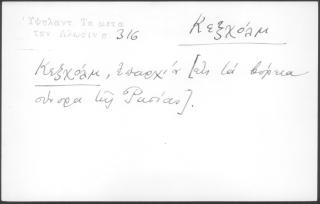 Ὑψηλαντ. Τα μετα
την Αλωσιν σ. 316
Κεξχόλμ
Κεξχόλμ, ἐπαρχία [εἰς τὰ βόρεια
σύνορα τῆς Ρωσίας].